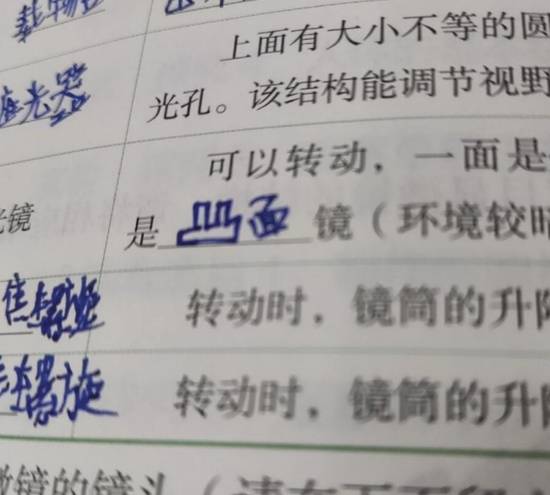 载物
上面有大小不等的圆
遮光器
光孔。该结构能调节视野
可以转动，一面是
镜
是凹面镜（环境较暗
焦螺旋
转动时，镜筒的升降
螺旋
转动时，镜筒的升
微镜的镜头（请在